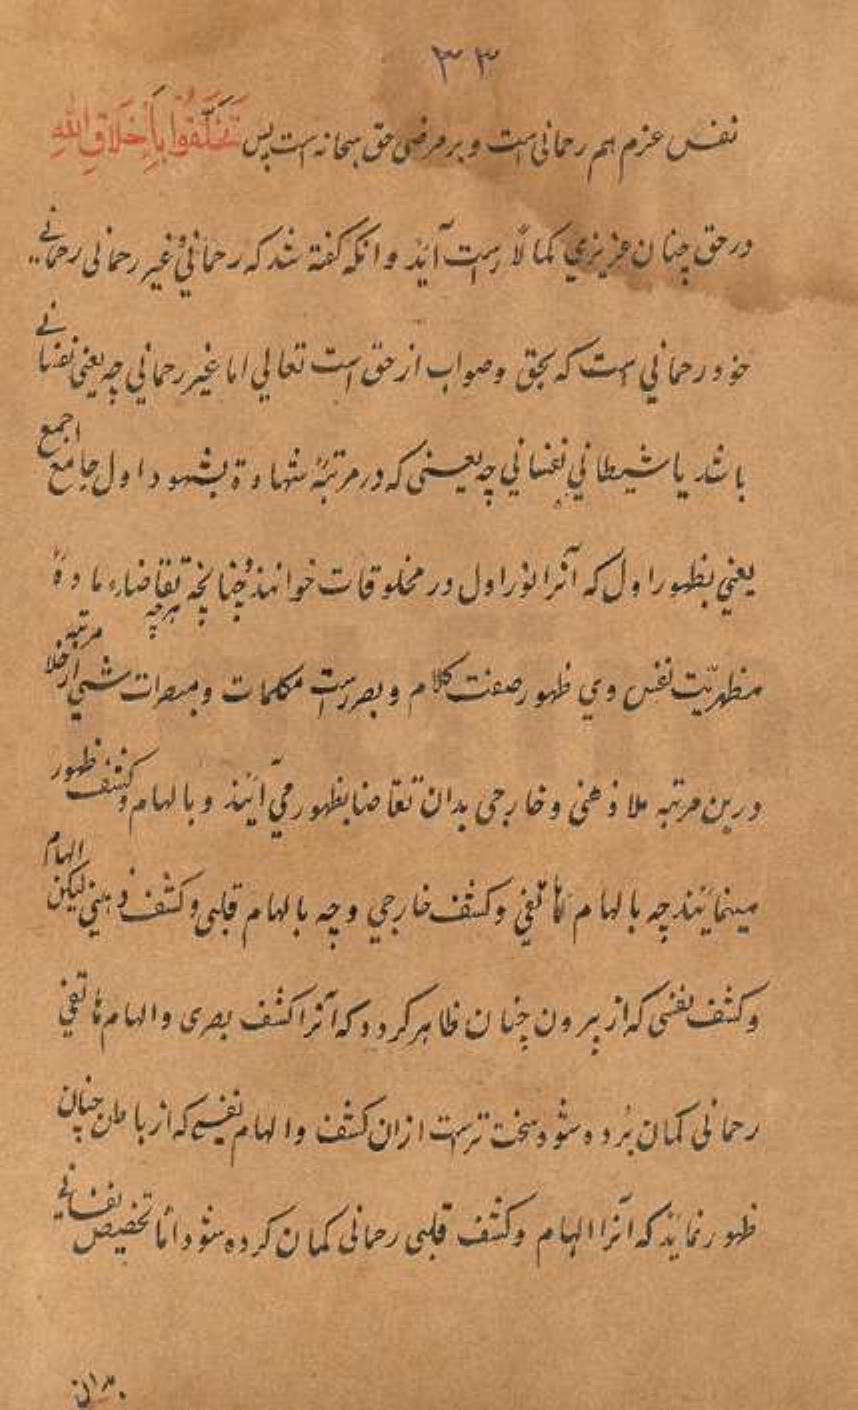 ۳۳
نفس عزم هم رحمانی است و بر مرضی حق سبحانه است پس تَخَلَّقُوا بِأَخْلَاقِ اللهِ
در حق چنان عزیزي کمالا راست آید و انکه کفته شد که رحمانی و غیر رحمانی رحمانے
خود رحماني است که بحق و صواب از حق است تعالي اما غیر رحماني چه یعنی نفسانے
باشد یا شیطاني نفساني چه یعنی که در مرتبهٔ شهادة بشهود اول جامع اجمع
یعني بظهور اول که آنرا نور اول در مخلوقات خوانند و چنانچه هرچه تقاضاء مادهٔ
مظهریّت نفس وي ظهور صفت کلام و بصر است مکلمات و مبصرات شي از خلا مرتبه
درین مرتبه ملا ذهنی و خارجی بدان تقاضا بظهور می آیند و بالهام و کشف ظهور
مینمایند چه بالهام هاتفي و کشف خارجي و چه بالهام قلبی و کشف ذهني لیکن الهام
و کشف نفسی که از بیرون چنان ظاهر کردد که آنرا کشف بصری و الهام هاتفي
رحمانی کمان بُرده شود سخت تر است ازان کشف و الهام نفسي که از باطن چنان
ظهور نماید که آنرا الهام و کشف قلبی رحمانی کمان کرده شود امّا تخصیص نفسانے
بدان